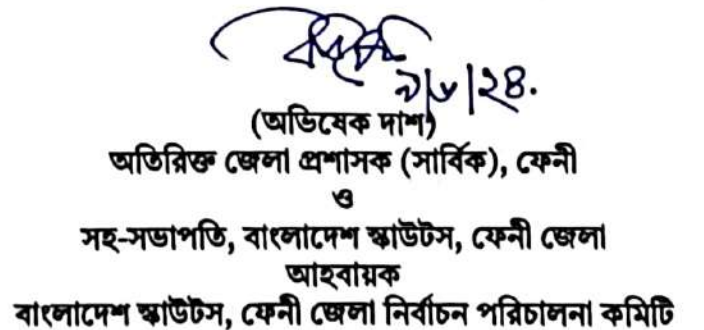 ৯|৮|২৪.
(অভিষেক দাশ)
অতিরিক্ত জেলা প্রশাসক (সার্বিক), ফেনী
ও
সহ-সভাপতি, বাংলাদেশ স্কাউটস, ফেনী জেলা
আহবায়ক
বাংলাদেশ স্কাউটস, ফেনী জেলা নির্বাচন পরিচালনা কমিটি